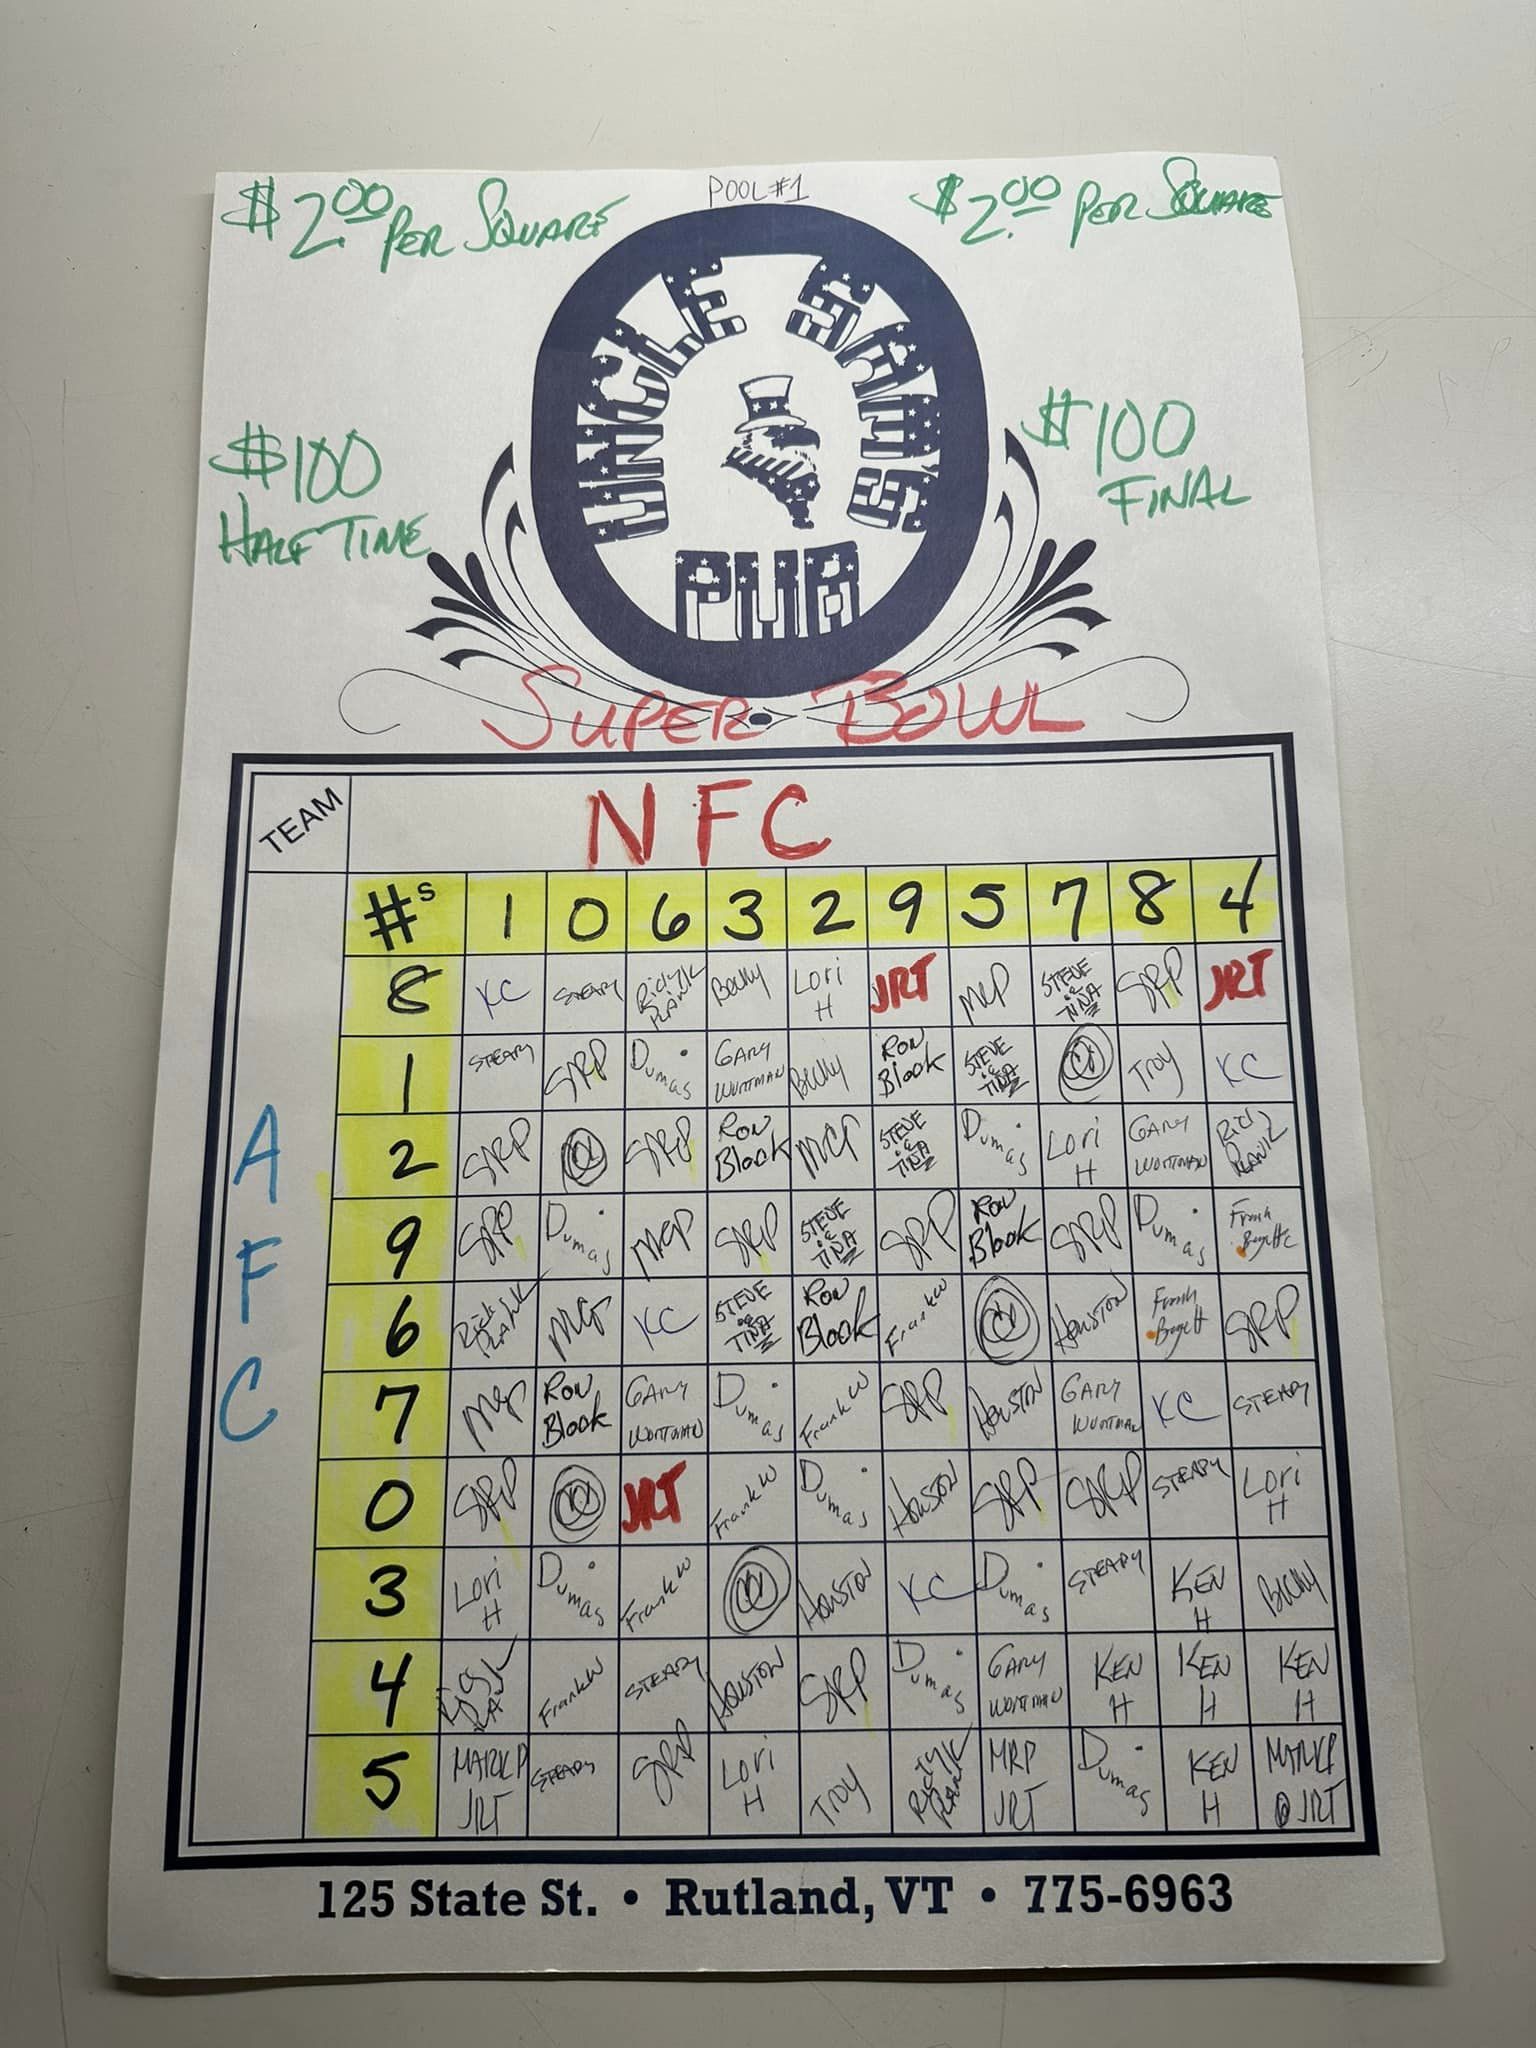 POOL #1
$2.00 PER SQUARE
$2.00 PER SQUARE
UNCLE SAM'S
PUB
$100
HALF TIME
$100
FINAL
SUPER BOWL
TEAM
NFC
AFC
#s 1 0 6 3 2 9 5 7 8 4
8 KC STEARY Becky Lori H JRT MGP STEVE & TINA SRP JRT
1 STEARY SRP Dumas GARY WORTMAN Becky Ron Black STEVE & TINA Troy KC
2 SRP SRP Ron Black MGP STEVE & TINA Dumas Lori H GARY WORTMAN
9 SRP Dumas MGP SRP STEVE & TINA SRP Ron Black SRP Dumas Frank
6 MGP KC STEVE & TINA Ron Black Frank W HOUSTON Frank SRP
7 MGP Ron Black GARY WORTMAN Dumas Frank W SRP HOUSTON GARY WORTMAN KC STEARY
0 SRP JRT Frank W Dumas HOUSTON SRP SRP STEARY Lori H
3 Lori H Dumas Frank W HOUSTON KC Dumas STEARY KEN H Becky
4 Frank W STEARY HOUSTON SRP Dumas GARY WORTMAN KEN H KEN H KEN H
5 MARK P JRT STEARY SRP Lori H Troy MRP JRT Dumas KEN H MARK P JRT
125 State St. • Rutland, VT • 775-6963